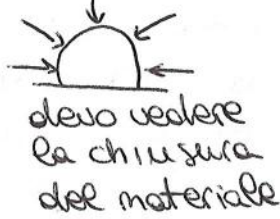 devo vedere
la chiusura
del materiale